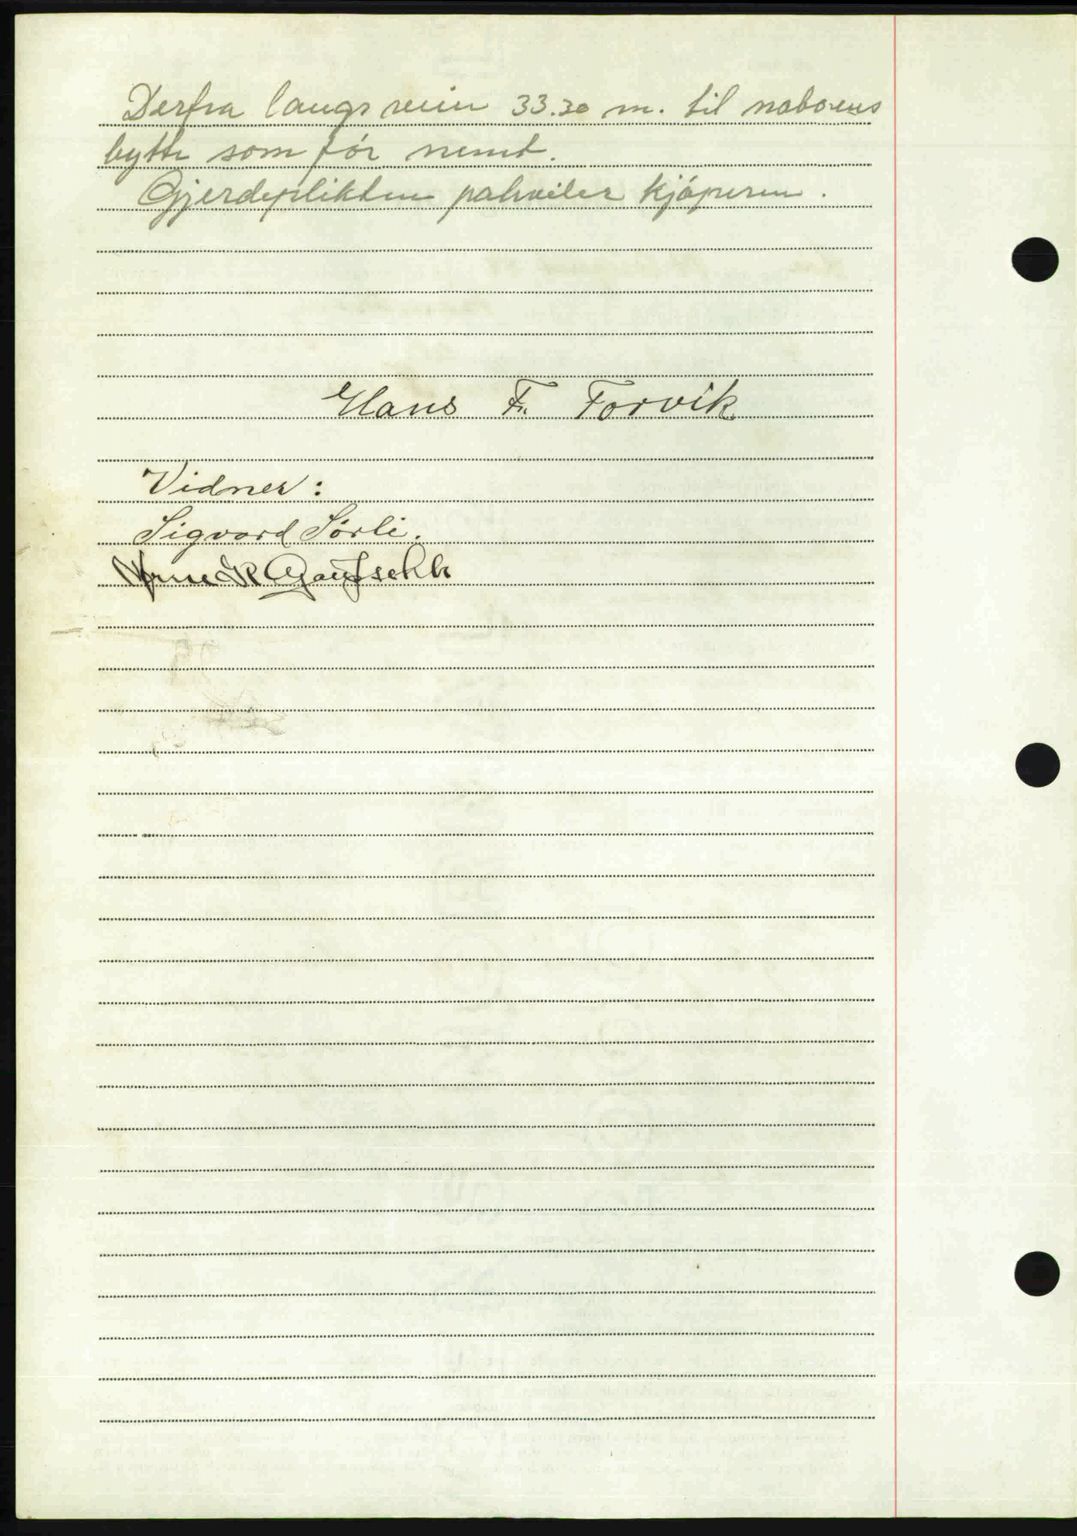 Derfra langs veien 33.30 m. til naboens
bytte som før nemt.
Gjerdeplikten pahviler kjøperen.
Hans F. Forvik
Vidner:
Sigvard Sørli.